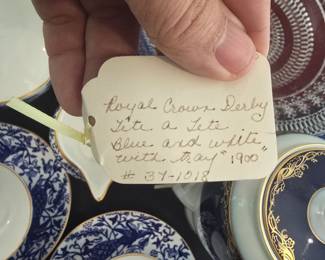 Royal Crown Derby
Tête a Tête
Blue and white
with Tray "1900"
# 37-1018